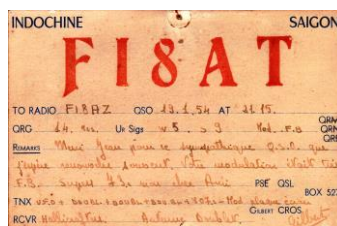 INDOCHINE SAIGON
FI8AT
TO RADIO FI8AZ QSO 13.1.54 AT 21.15.
QRG 14. Ur Sigs 5 9 Mod. F.B QRM QRN
REMARKS Merci Jean pour ce sympathique Q.S.O. que
j'espère renouveler souvent. Votre modulation était très
F.B. Supers 73s mon cher Ami PSE QSL
TNX GILBERT CROS BOX 527
RCVR Hallicrafter Antenne Doublet Gilbert